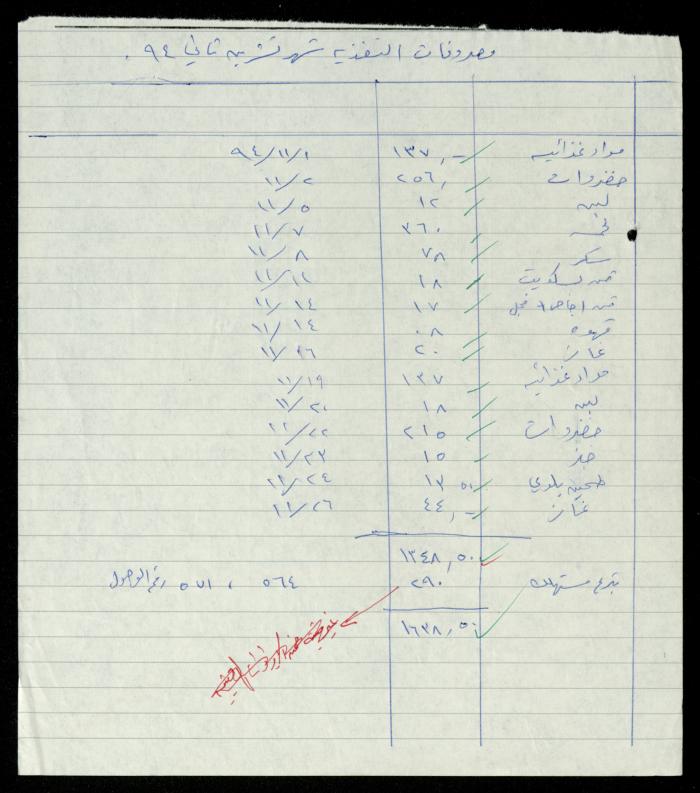 مصروفات التغذيه شهر تشرين ثاني ٩٤ .
مواد غذائيه ١٣٧,- ٩٤/١١/١
خضروات ٢٥٦, ١١/٢
لبن ١٢ ١١/٥
٣٦٠ ١١/٧
سكر ٧٨ ١١/٨
ثمن بسكويت ١٨ ١١/١٢
ثمن اجاص + فجل ١٧ ١١/١٤
قهوه ٠٨ ١١/١٤
غاز ٢٠ ١١/١٦
مواد غذائيه ١٣٧ ١١/١٩
لبن ١٨ ١١/٢٠
خضروات ٢١٥ ١١/٢٢
خبز ١٥ ١١/٢٣
طحين بلدي ١٣,٥٠ ١١/٢٤
غاز ٤٤,- ١١/٢٦
١٣٤٨,٥٠
تبرع ٢٩٠ ٥٦٤ ، ٥٧١ رقم الوصول
١٦٣٨,٥٠